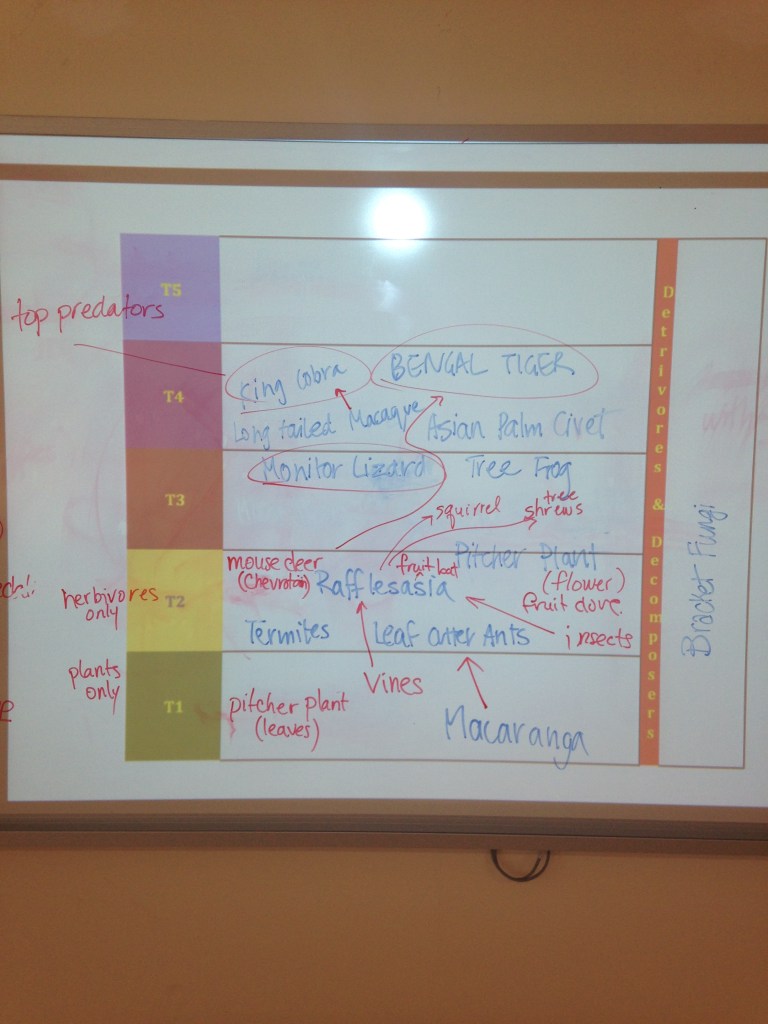 T5
top predators
King Cobra
BENGAL TIGER
T4
Long tailed Macaque
Asian Palm Civet
Monitor Lizard
Tree Frog
T3
squirrel
tree
shrews
mouse deer
(Chevrotain)
fruit bat
Pitcher Plant
(flower)
Rafflesasia
herbivores
only
T2
fruit dove
Termites
Leaf cutter Ants
insects
plants
only
Vines
T1
pitcher plant
(leaves)
Macaranga
Detrivores & Decomposers
Bracket Fungi